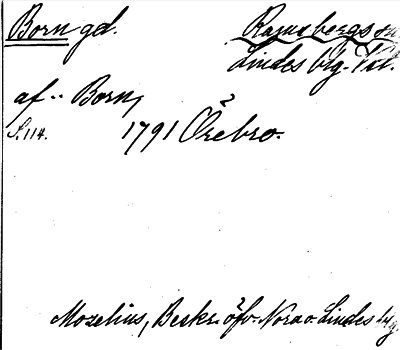 Born gd. Ramsbergs sn
Lindes blg. Vtl.
af.. Born,
S. 114. 1791 Örebro.
Mozelius, Beskr. öfv. Nora o. Lindes bg.